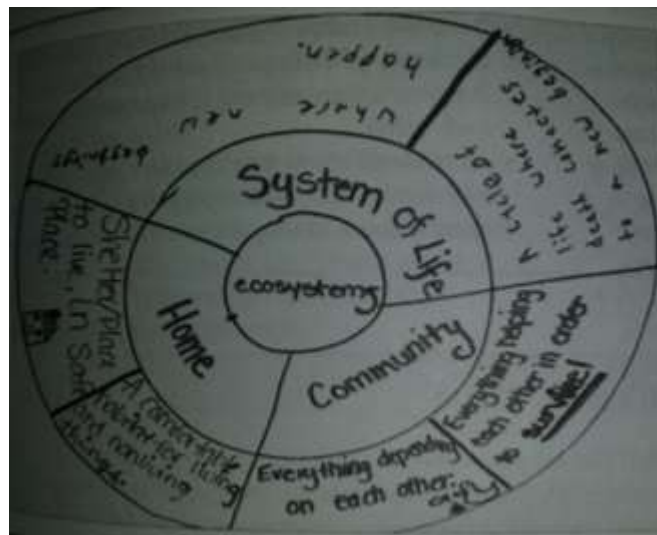 ecosystems
System of Life
Community
Home
where new beginnings
happen.
A cycle of
life where
death conectes
to a new
Everything helping
each other in order
to survive!
Everything depending
on each other.
A comfortable
habitat for living
and nonliving
things.
Shelter/place
to live, in Safe
Place.